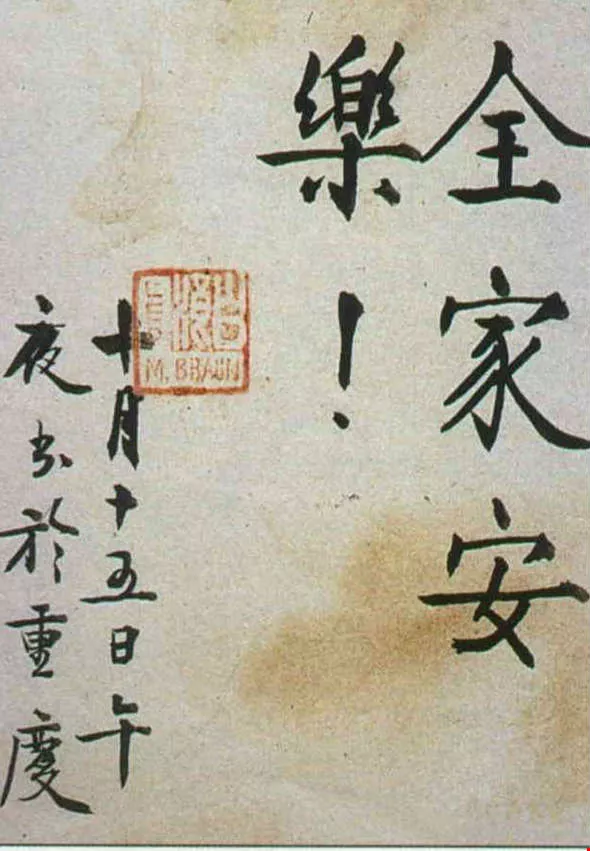 全家安
樂！
十月十五日午
夜书於重慶
M. BRAUN